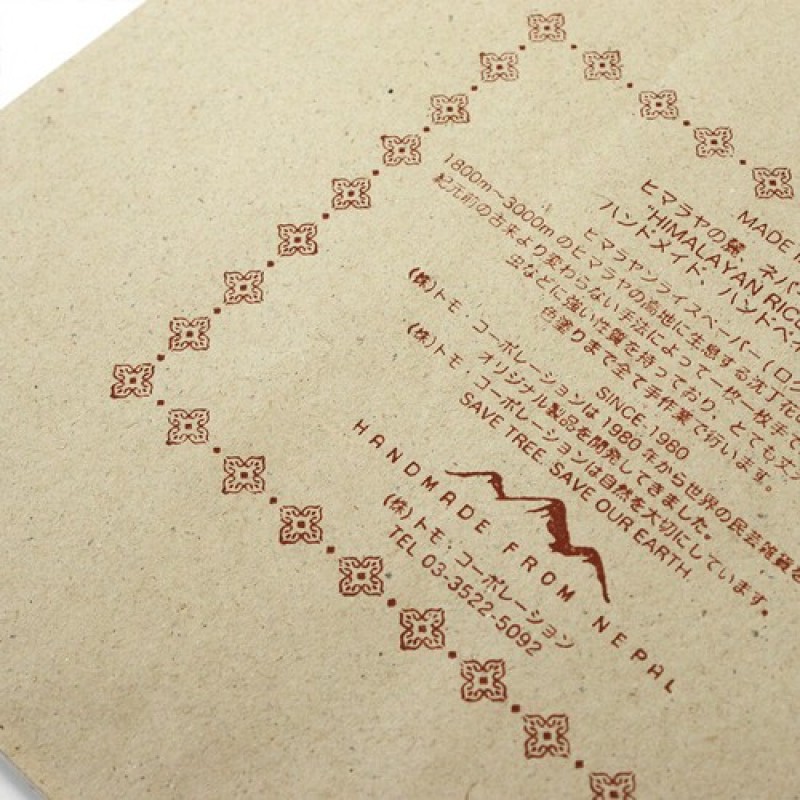 MADE I
ヒマラヤの麓、ネパー
"HIMALAYAN RIC
ハンドメイド、ハンドペ
ヒマラヤンライスペーパー(ロク
1800m～3000mのヒマラヤの高地に生息する沈丁花
紀元前の古来より変わらない手法によって一枚一枚手で
虫などに強い性質を持っており、とても丈
色塗りまで全て手作業で行います。
SINCE. 1980
(株)トモ・コーポレーションは1980年から世界の民芸雑貨を
オリジナル製品を開発してきました。
(株)トモ・コーポレーションは自然を大切にしています。
SAVE TREE. SAVE OUR EARTH.
HANDMADE FROM NEPAL
(株)トモ・コーポレーション
TEL 03-3522-5092